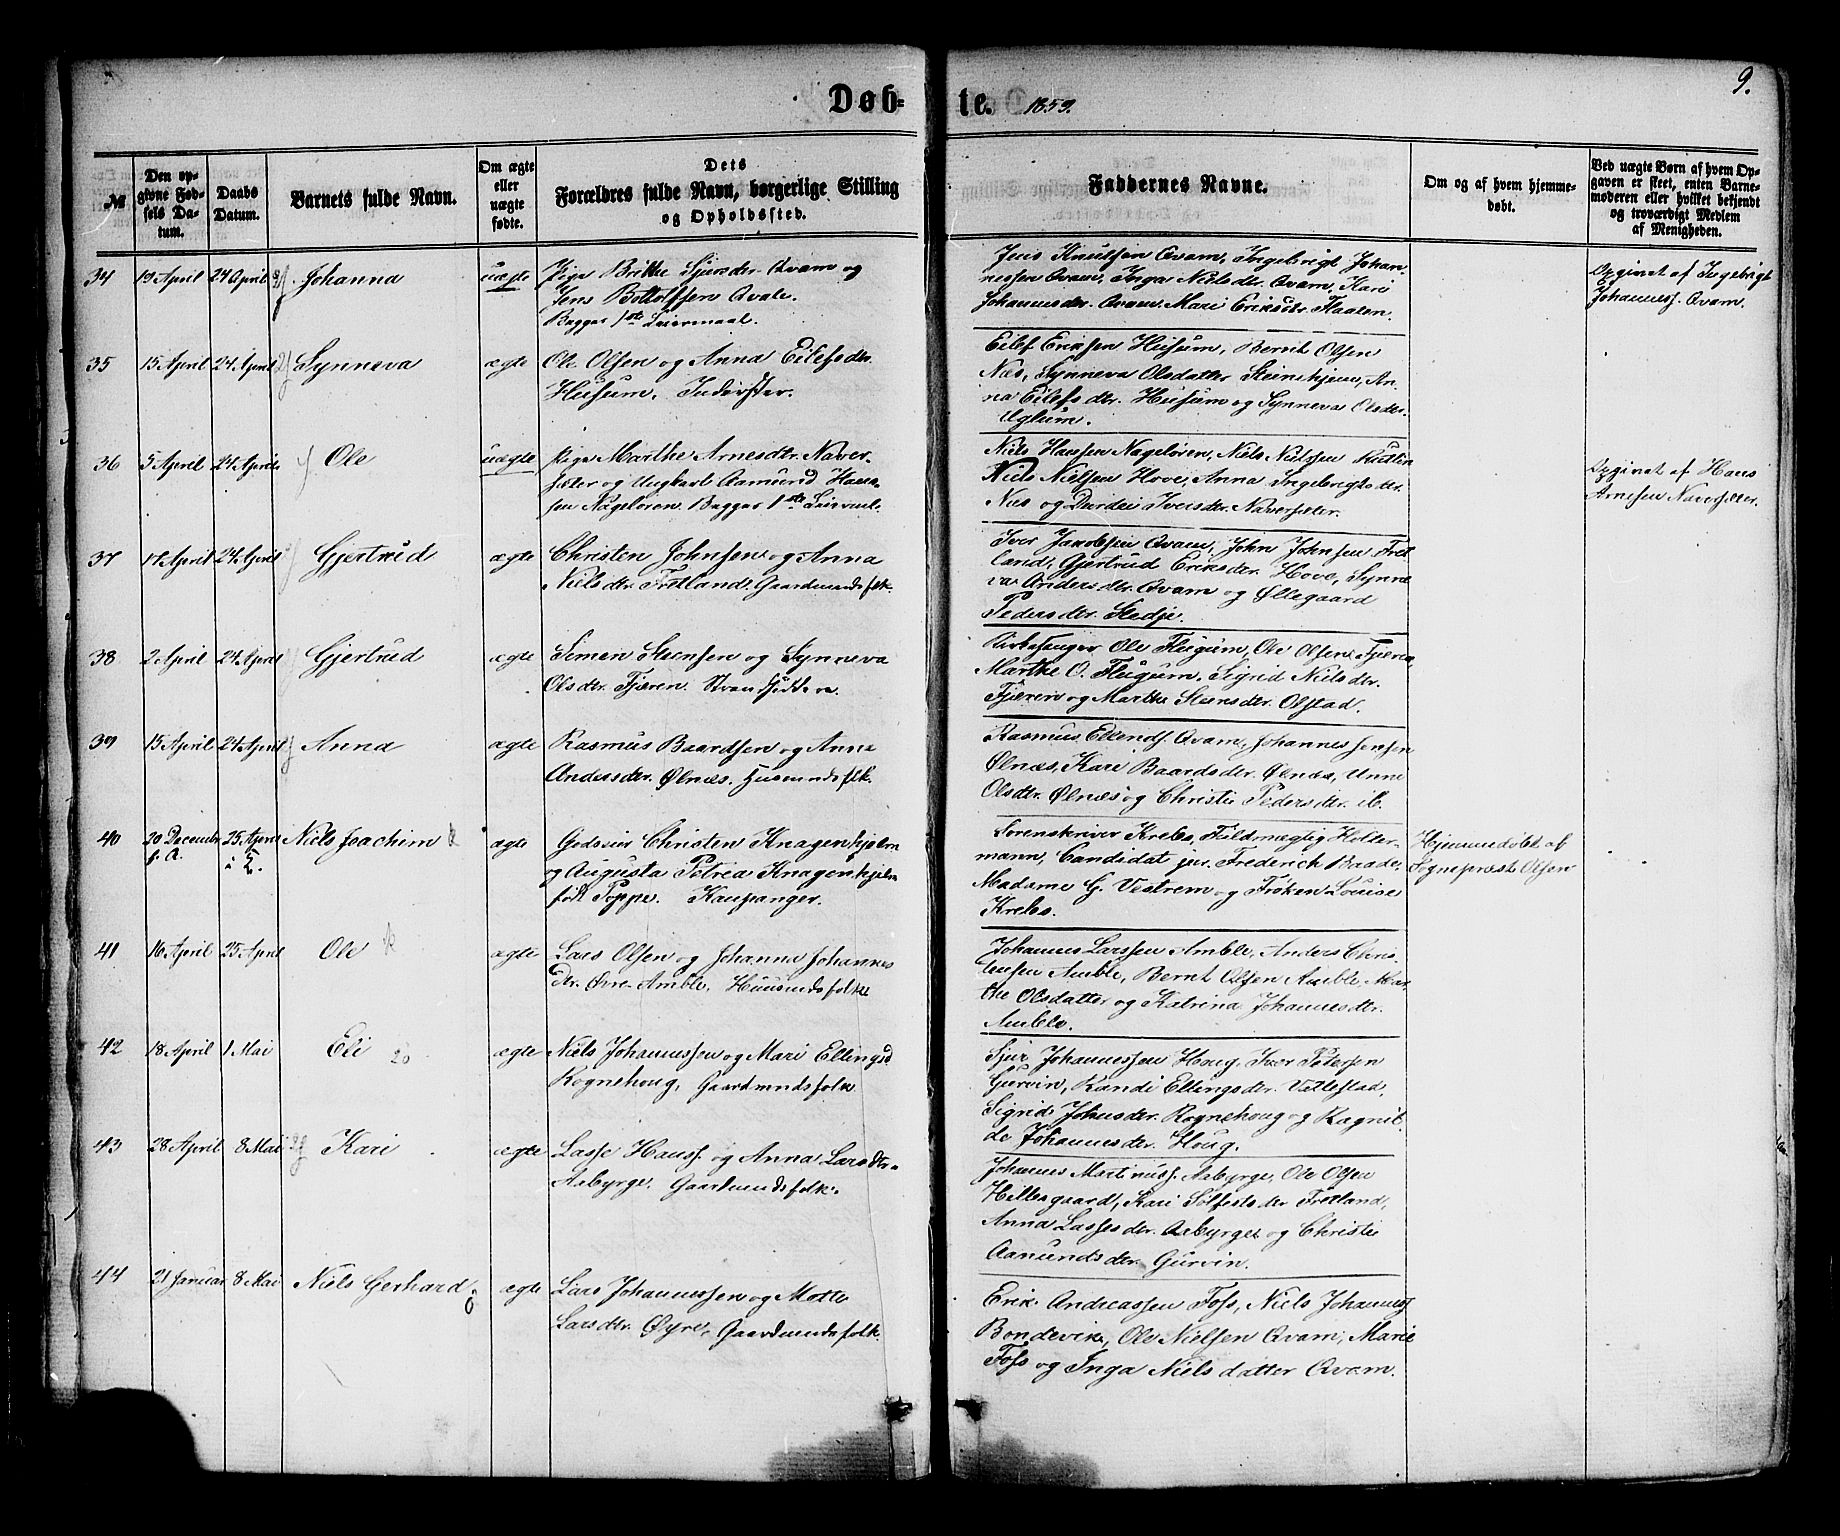 9.
Døb-te. 1859.
№
Den op-
givne Fød-
sels Da-
tum.
Daabs
Datum.
Barnets fulde Navn.
Om ægte
eller
uægte
fødte.
Dets
Forældres fulde Navn, borgerlige Stilling
og Opholdssted.
Faddernes Navne.
Om og af hvem hjemme-
døbt.
Ved uægte Børn af hvem Op-
gaven er skeet, enten Barne-
moderen eller hvilket bekjendt
og troværdigt Medlem
af Menigheden.
34 19 April 24 April Johanna uægte Pige Brithe Sjursdr. Qvam og
Jens Bottolfsen Qvale.
Begges 1ste Leiermaal.
Jens Knutsen Qvam, Ingebrigt Johan-
nessen Qvam, Inga Nielsdr. Qvam, Kari
Johannesdr. Qvam. Mari Eriksdtr. Flaaten.
Opgivet af Ingebrigt
Johanness. Qvam.
35 15 April 24 April Synneva ægte Ole Olsen og Anna Eilefsdr.
Husum. Inderster.
Eilef Eriksen Husum, Bernt Olsen
Næs, Synneva Olsdatter Steinshjem, An-
na Eilefsdr. Husum og Synneva Olsdr.
Uglum.
36 5 April 24 April Ole uægte Pige Marthe Arnesdtr. Naver-
sæter og Ungkarl Aamund Han-
sen Nageløren. Begges 1ste Leierml.
Niels Hansen Nageløren, Niels Nielssen Rutlin
Niels Nielsen Hove, Anna Ingebrigtsdr.
Næs og Durdei Iversdr. Naversæter.
Opgivet af Hans
Arnesen Naversæter.
37 14 April 24 April Gjertrud ægte Christen Johnsen og Anna
Nielsdr. Fretland. Gaardmandsflk.
Iver Jacobsen Qvam, John Johnsen Fret-
land, Gjertrud Eriksdr. Hove, Synne
va Andersdr. Qvam og Øllegaard
Pedersdr. Stedje.
38 2 April 24 April Gjertrud ægte Simen Steensen og Synneva
Olsdr. Fjæren. Strandsiddere.
Kirkesanger Ole Flugum, Ole Olsen Fjæren
Marthe O. Flugum, Sigrid Nielsdr.
Fjæren og Marthe Steensdr. Olstad.
39 15 April 24 April Anna ægte Rasmus Baardsen og Anna
Andersdr. Ølnæs. Husmandsflk.
Rasmus Ellends. Qvam, Johannes Jensen
Ølnæs, Kari Baardsdr. Ølnæs, Unne
Olsdtr. Ølnæs og Christi Pedersdtr. ib.
40 20 December
f. A. 25 April
i K. Niels Joachim k ægte Godseier Christen Knagenhjelm
og Augusta Petrea Knagenhjelm
født Poppe. Kaupanger.
Sorenskriver Krebs, Fuldmægtig Holter-
mann, Candidat jur. Frederich Baade
Madame G. Vestrem og Frøken Louise
Krebs.
Hjemmedøbt af
Sognepræst Olsen
41 16 April 25 April Ole k ægte Lars Olsen og Johanna Johannes
dr. Øvre-Amble. Huusmdsfolk
Johannes Larssen Amble, Anders Chris-
tensen Amble, Bernt Olsen Amble, Mar-
the Olsdatter og Katrina Johannesdr.
Amble.
42 18 April 1 Mai Eli ægte Niels Johannessen og Mari Ellingsd
Rognehoug, Gaardmndsfolk
Sjur Johannessen Houg, Iver Petersen
Gurvin, Randi Ellingsdr. Vatlestad,
Sigrid Johnsdr. Rognehoug og Ragnil-
de Johannesdr. Houg.
43 28 April 8 Mai Kari ægte Lasse Hanss. og Anna Larsdtr.
Aabyrge. Gaardmandsfolk.
Johannes Martinuss. Aabyrge, Ole Olsen
Hillesgaard, Kari Solfestsdtr Fretland,
Anna Lassesdr. Aabyrge og Christi
Aamundsdr. Gurvin.
44 21 Januar 8 Mai Niels Gerhard ægte Lars Johannessen og Mette
Larsdr. Øyre, Gaardmandsfolk.
Erik Andreassen Foss, Niels Johanness.
Bondevik, Ole Nielsen Qvam, Marie
Foss og Inga Nielsdatter Qvam.